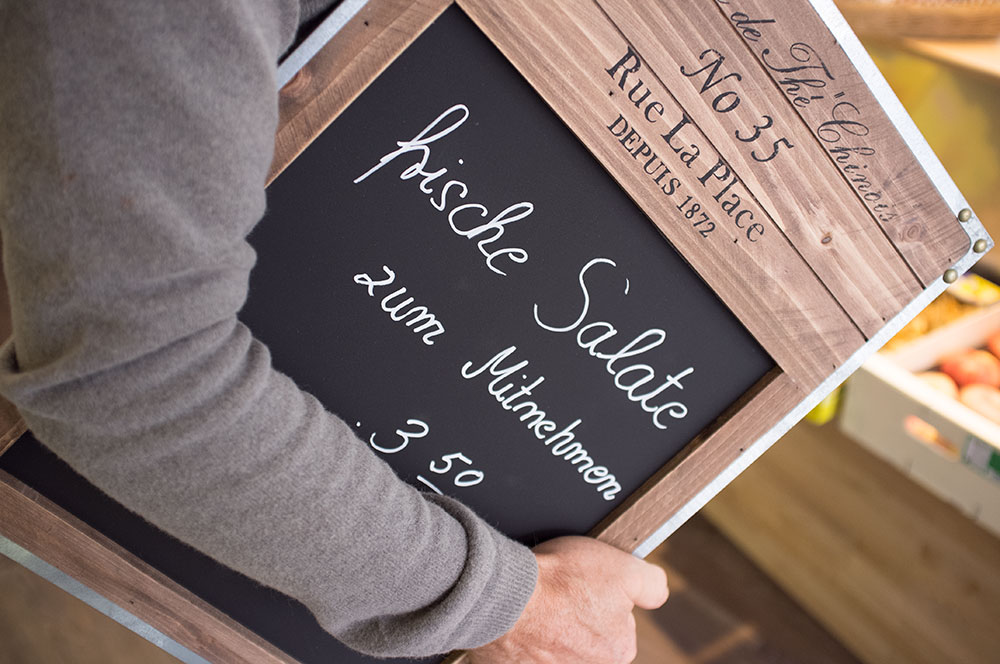 de Thé "Chinois"
No 35
Rue La Place
DEPUIS 1872
frische Salate
zum Mitnehmen
. 3 50